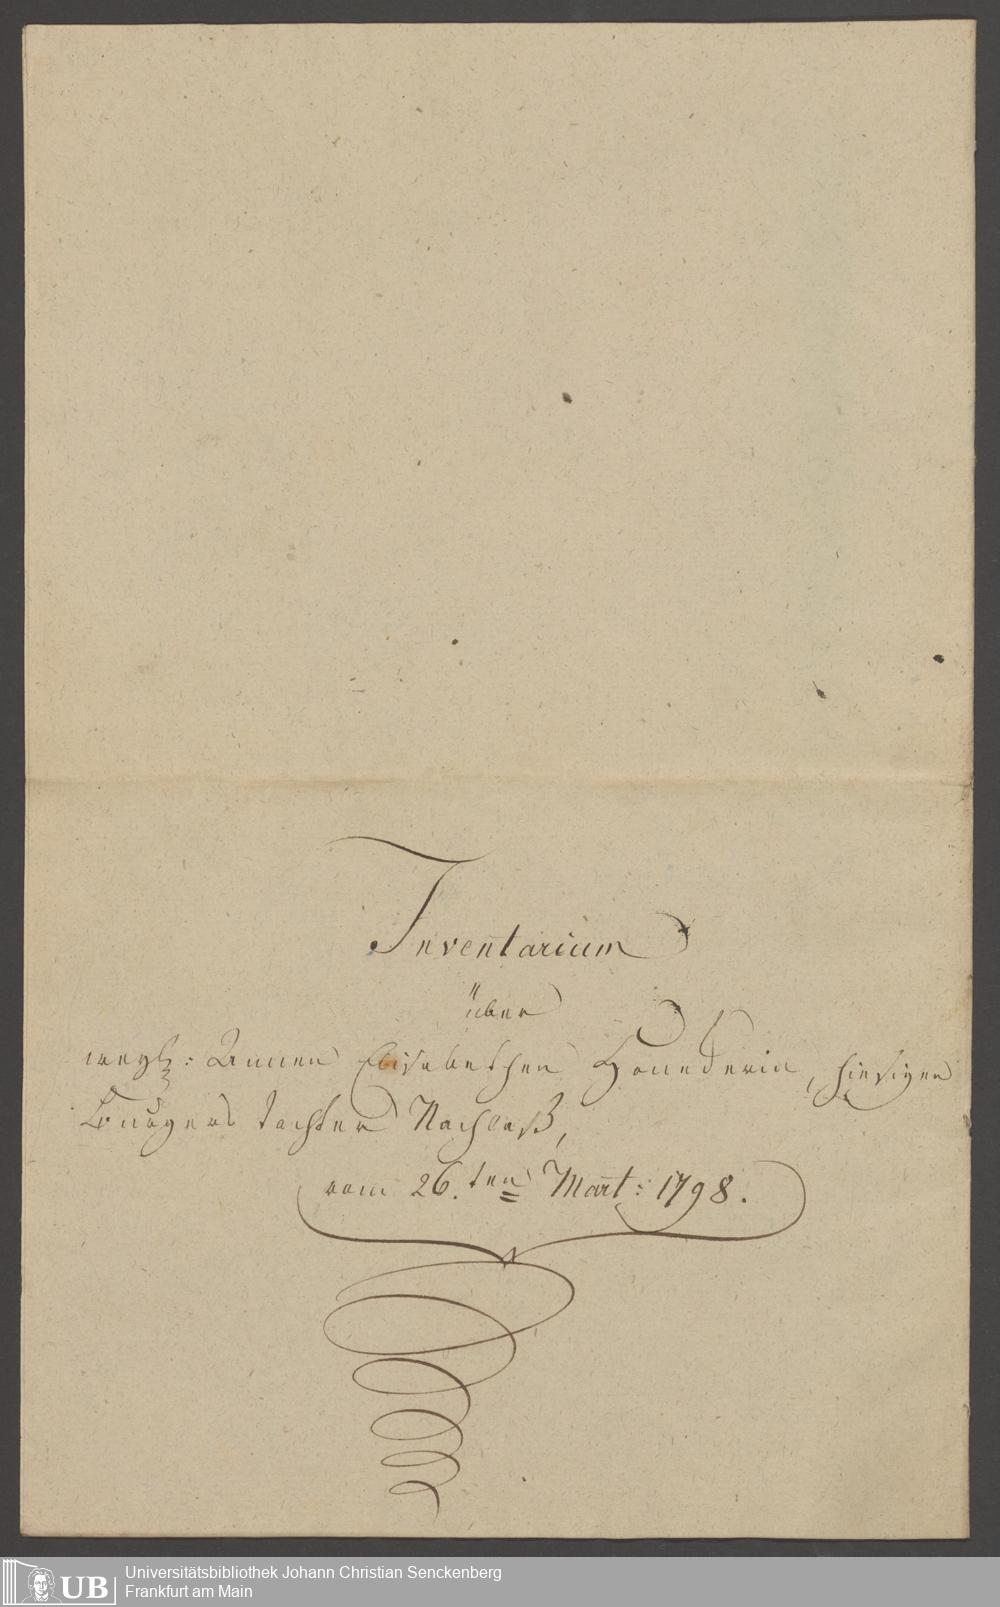 Inventarium
über
weyl: Annen Elisabethen, hiesigen
Burgers tochter Nachlaß,
vom 26.ten Mart: 1798.
UB Universitätsbibliothek Johann Christian Senckenberg
Frankfurt am Main